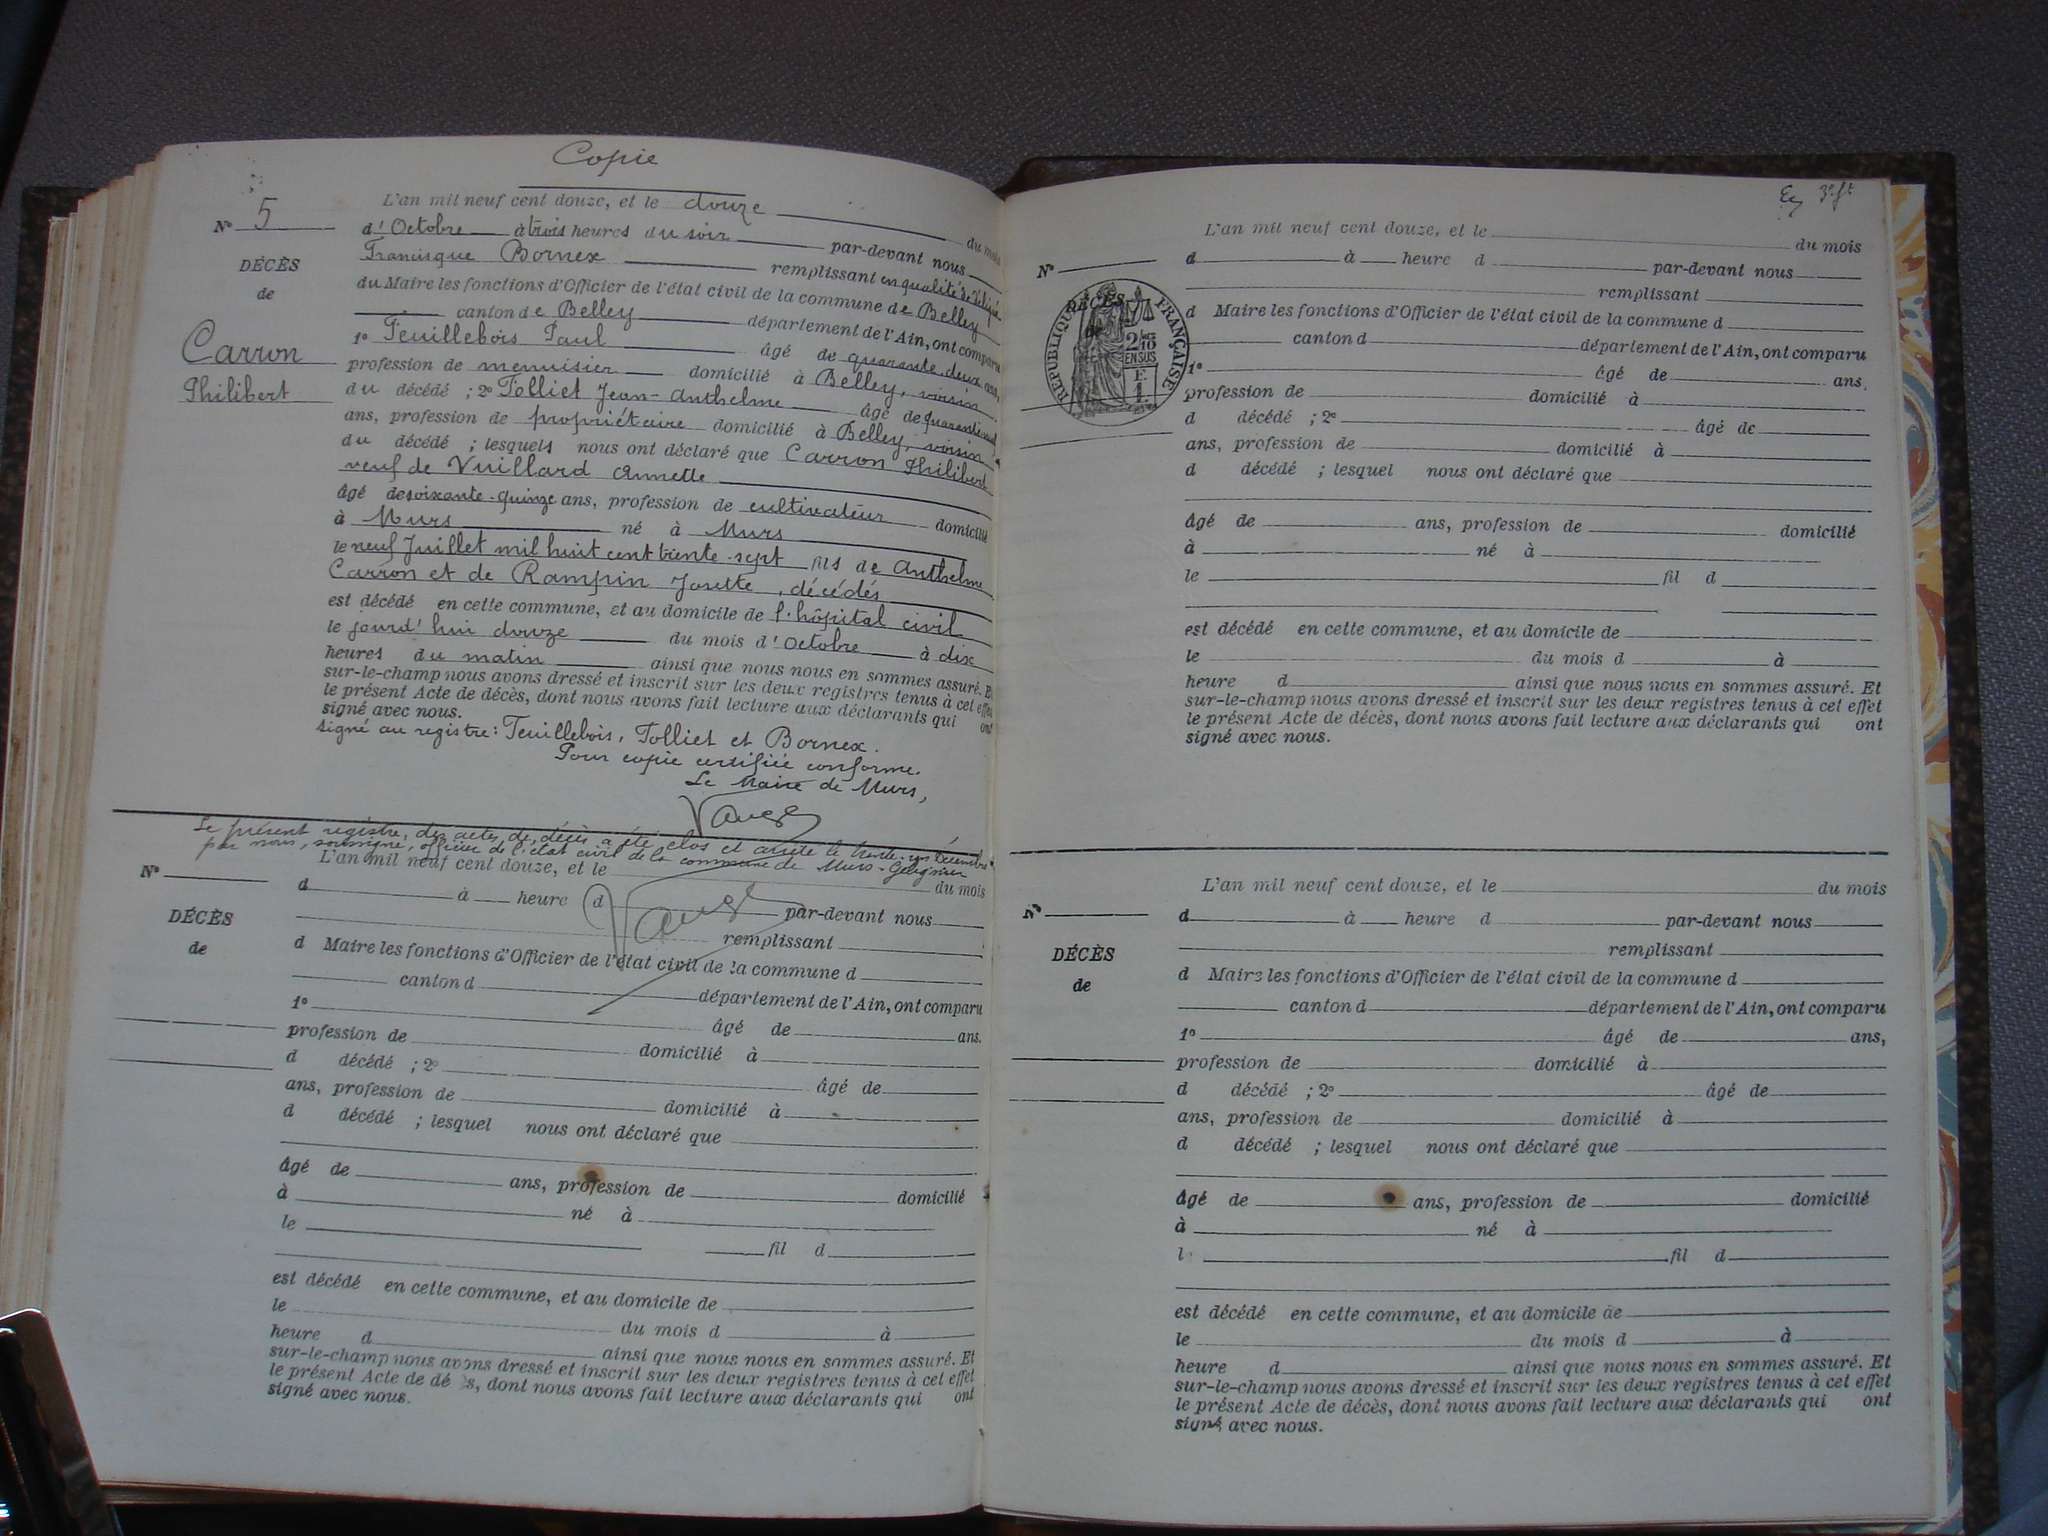 Copie
L'an mil neuf cent douze, et le douze du mois
N° 5
d'Octobre à trois heures du soir par-devant nous
Francisque Bornex remplissant en qualité de délégué
DÉCÈS
de
Carron
Philibert
du Maire les fonctions d'Officier de l'état civil de la commune de Belley
canton de Belley département de l'Ain, ont comparu
1° Feuillebois Paul âgé de quarante deux ans,
profession de menuisier domicilié à Belley, voisin
du décédé ; 2° Tolliet Jean-Anthelme âgé de
ans, profession de propriétaire domicilié à Belley, voisin
du décédé ; lesquels nous ont déclaré que Carron Philibert
veuf de Vuillard Annette
âgé de soixante-quinze ans, profession de cultivateur domicilié
à Murs né à Murs
le neuf Juillet mil huit cent trente-sept fils de Anthelme
Carron et de Rampin Josette, décédés
est décédé en cette commune, et au domicile de l'hôpital civil
le jourd'hui douze du mois d'Octobre à dix
heures du matin ainsi que nous nous en sommes assuré. Et
sur-le-champ nous avons dressé et inscrit sur les deux registres tenus à cet effet
le présent Acte de décès, dont nous avons fait lecture aux déclarants qui ont
signé avec nous.
Signé au registre : Feuillebois, Tolliet et Bornex.
Pour copie certifiée conforme.
Le Maire de Murs,
Le présent registre, des actes de décès a été clos et arrêté le trente-un Décembre
par nous, soussigné, officier de l'état civil de la commune de Murs-Gélignieux
L'an mil neuf cent douze, et le du mois
N°
d à heure d par-devant nous
remplissant
DÉCÈS
de
d Maire les fonctions d'Officier de l'état civil de la commune d
canton d département de l'Ain, ont comparu
1° âgé de ans.
profession de domicilié à
d décédé ; 2° âgé de
ans, profession de domicilié à
d décédé ; lesquel nous ont déclaré que
âgé de ans, profession de domicilié
à né à
le fil d
est décédé en cette commune, et au domicile de
le du mois d à
heure d ainsi que nous nous en sommes assuré. Et
sur-le-champ nous avons dressé et inscrit sur les deux registres tenus à cet effet
le présent Acte de décès, dont nous avons fait lecture aux déclarants qui ont
signé avec nous.
L'an mil neuf cent douze, et le du mois
N°
d à heure d par-devant nous
remplissant
DÉCÈS
de
RÉPUBLIQUE FRANÇAISE
2/10
EN SUS
d Maire les fonctions d'Officier de l'état civil de la commune d
canton d département de l'Ain, ont comparu
1° âgé de ans,
profession de domicilié à
d décédé ; 2° âgé de
ans, profession de domicilié à
d décédé ; lesquel nous ont déclaré que
âgé de ans, profession de domicilié
à né à
le fil d
est décédé en cette commune, et au domicile de
le du mois d à
heure d ainsi que nous nous en sommes assuré. Et
sur-le-champ nous avons dressé et inscrit sur les deux registres tenus à cet effet
le présent Acte de décès, dont nous avons fait lecture aux déclarants qui ont
signé avec nous.
L'an mil neuf cent douze, et le du mois
N°
d à heure d par-devant nous
remplissant
DÉCÈS
de
d Maire les fonctions d'Officier de l'état civil de la commune d
canton d département de l'Ain, ont comparu
1° âgé de ans,
profession de domicilié à
d décédé ; 2° âgé de
ans, profession de domicilié à
d décédé ; lesquel nous ont déclaré que
âgé de ans, profession de domicilié
à né à
l fil d
est décédé en cette commune, et au domicile de
le du mois d à
heure d ainsi que nous nous en sommes assuré. Et
sur-le-champ nous avons dressé et inscrit sur les deux registres tenus à cet effet
le présent Acte de décès, dont nous avons fait lecture aux déclarants qui ont
signé avec nous.